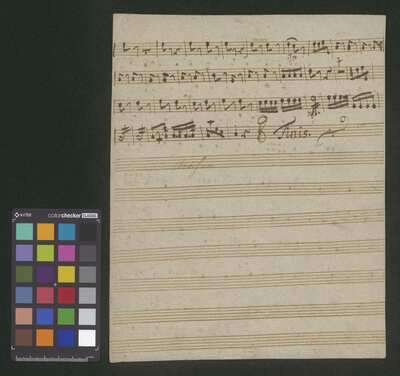 Finis.
x-rite
colorchecker CLASSIC